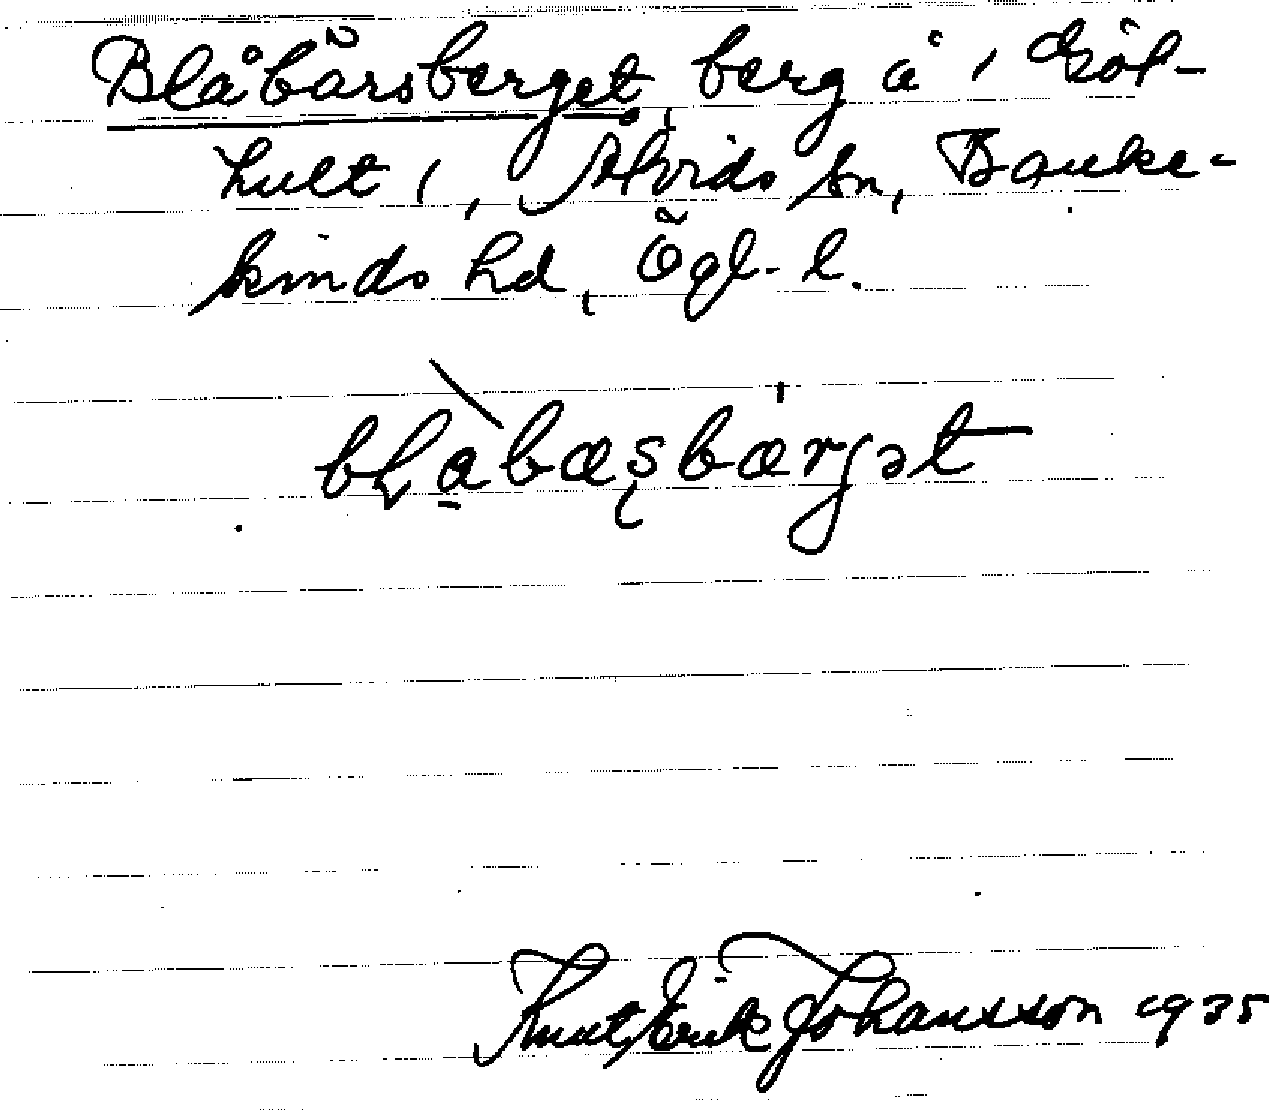 Blåbärsberget, berg å 1 Göl-
hult 1, Åtvids sn, Banke-
kinds hd, Ögl. l.
bLàbæşbærgət
Knut Erik Johansson 1935